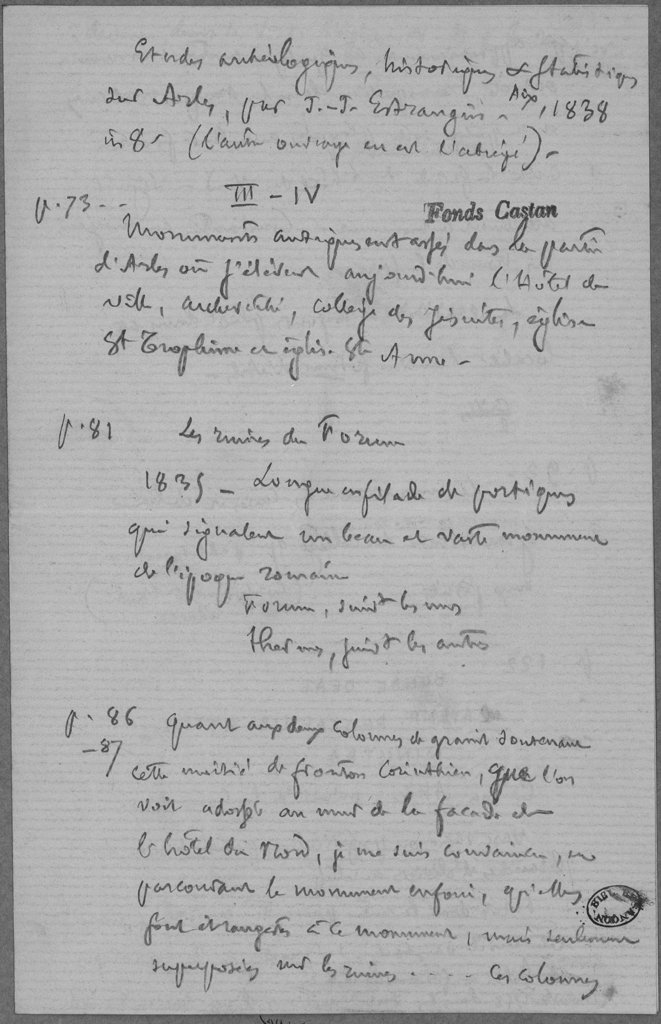 Etudes archéologiques, historiques & statistiques
sur Arles, par J.-J. Estrangin - Aix, 1838
in 8° (l'autre ouvrage en est l'abrégé) -
III - IV
p. 73 --
Fonds Castan
Monuments antiques dans la partie
d'Arles où s'élèvent aujourd'hui l'Hôtel de
ville, archevêché, collège des Jésuites, église
St Trophime et église Ste Anne -
p. 81 Les ruines du Forum
1835 - Longue enfilade de portiques
qui signalent un beau et vaste monument
de l'époque romaine
Forum, suivt les uns
thermes, suivt les autres
p. 86 Quant aux deux colonnes de granit soutenant
-87 cette moitié de fronton Corinthien, que l'on
voit adossé au mur de la façade de
l'hôtel du Nord, je me suis convaincu, en
parcourant le monument enfoui, qu'elles
sont étrangères à ce monument, mais seulement
superposées sur les ruines . . . . Ces colonnes
BIBL. BESANÇON